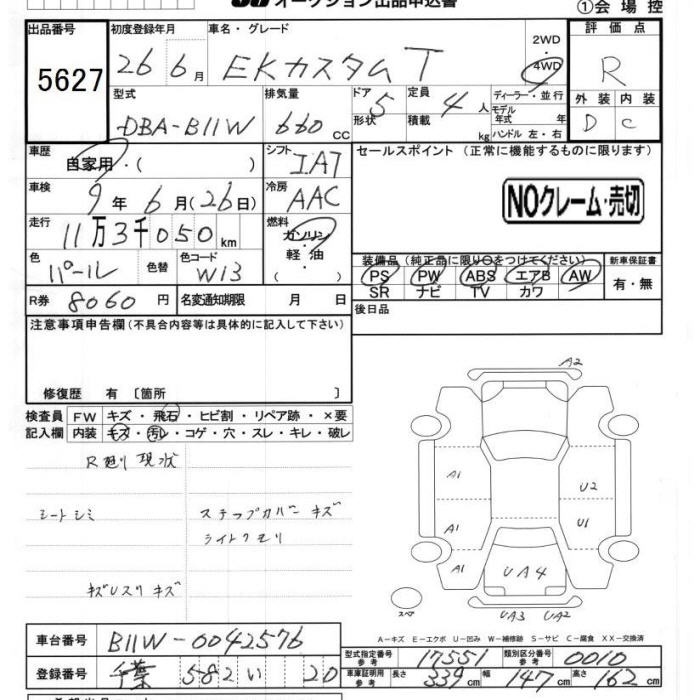 オークション出品申込書
①会場控
出品番号
5627
初度登録年月
26 6月
車名・グレード
EKカスタム T
2WD
4WD
評価点
R
型式
DBA-B11W
排気量
660 CC
ドア
形状
5
定員
積載
4 人
kg
ディーラー・並行
モデル
年式 年
ハンドル 左・右
外装 内装
D C
車歴
自家用・( )
シフト
IAT
セールスポイント (正常に機能するものに限ります)
NOクレーム・売切
車検
9年 6月(26日)
冷房
AAC
走行
11万3千050km
燃料
ガソリン
軽油
( )
色
パール
色替
色コード
W13
装備品 (純正品に限り○をつけてください)
PS PW ABS エアB AW
SR ナビ TV カワ
新車保証書
有・無
R券 8060円
名変通知期限 月 日
後日品
注意事項申告欄(不具合内容等は具体的に記入して下さい)
修復歴 有〔箇所 〕
検査員
記入欄
FW キズ・飛石・ヒビ割・リペア跡・×要
内装 キズ・汚レ・コゲ・穴・スレ・キレ・破レ
R廻り現状
シートシミ
ステップカバーキズ
ライトクモリ
キズUスリキズ
A2
A1
U2
A1
U1
A1
UA4
スペア
UA3 UA2
A-キズ E-エクボ U-凹み W-補修跡 S-サビ C-腐食 XX-交換済
車台番号
B11W-0042576
登録番号
千葉 582 い 20
型式指定番号
参考
17551
類別区分番号
参考
0010
車庫証明用
参考
長さ 339 cm 幅 147 cm 高さ 162 cm